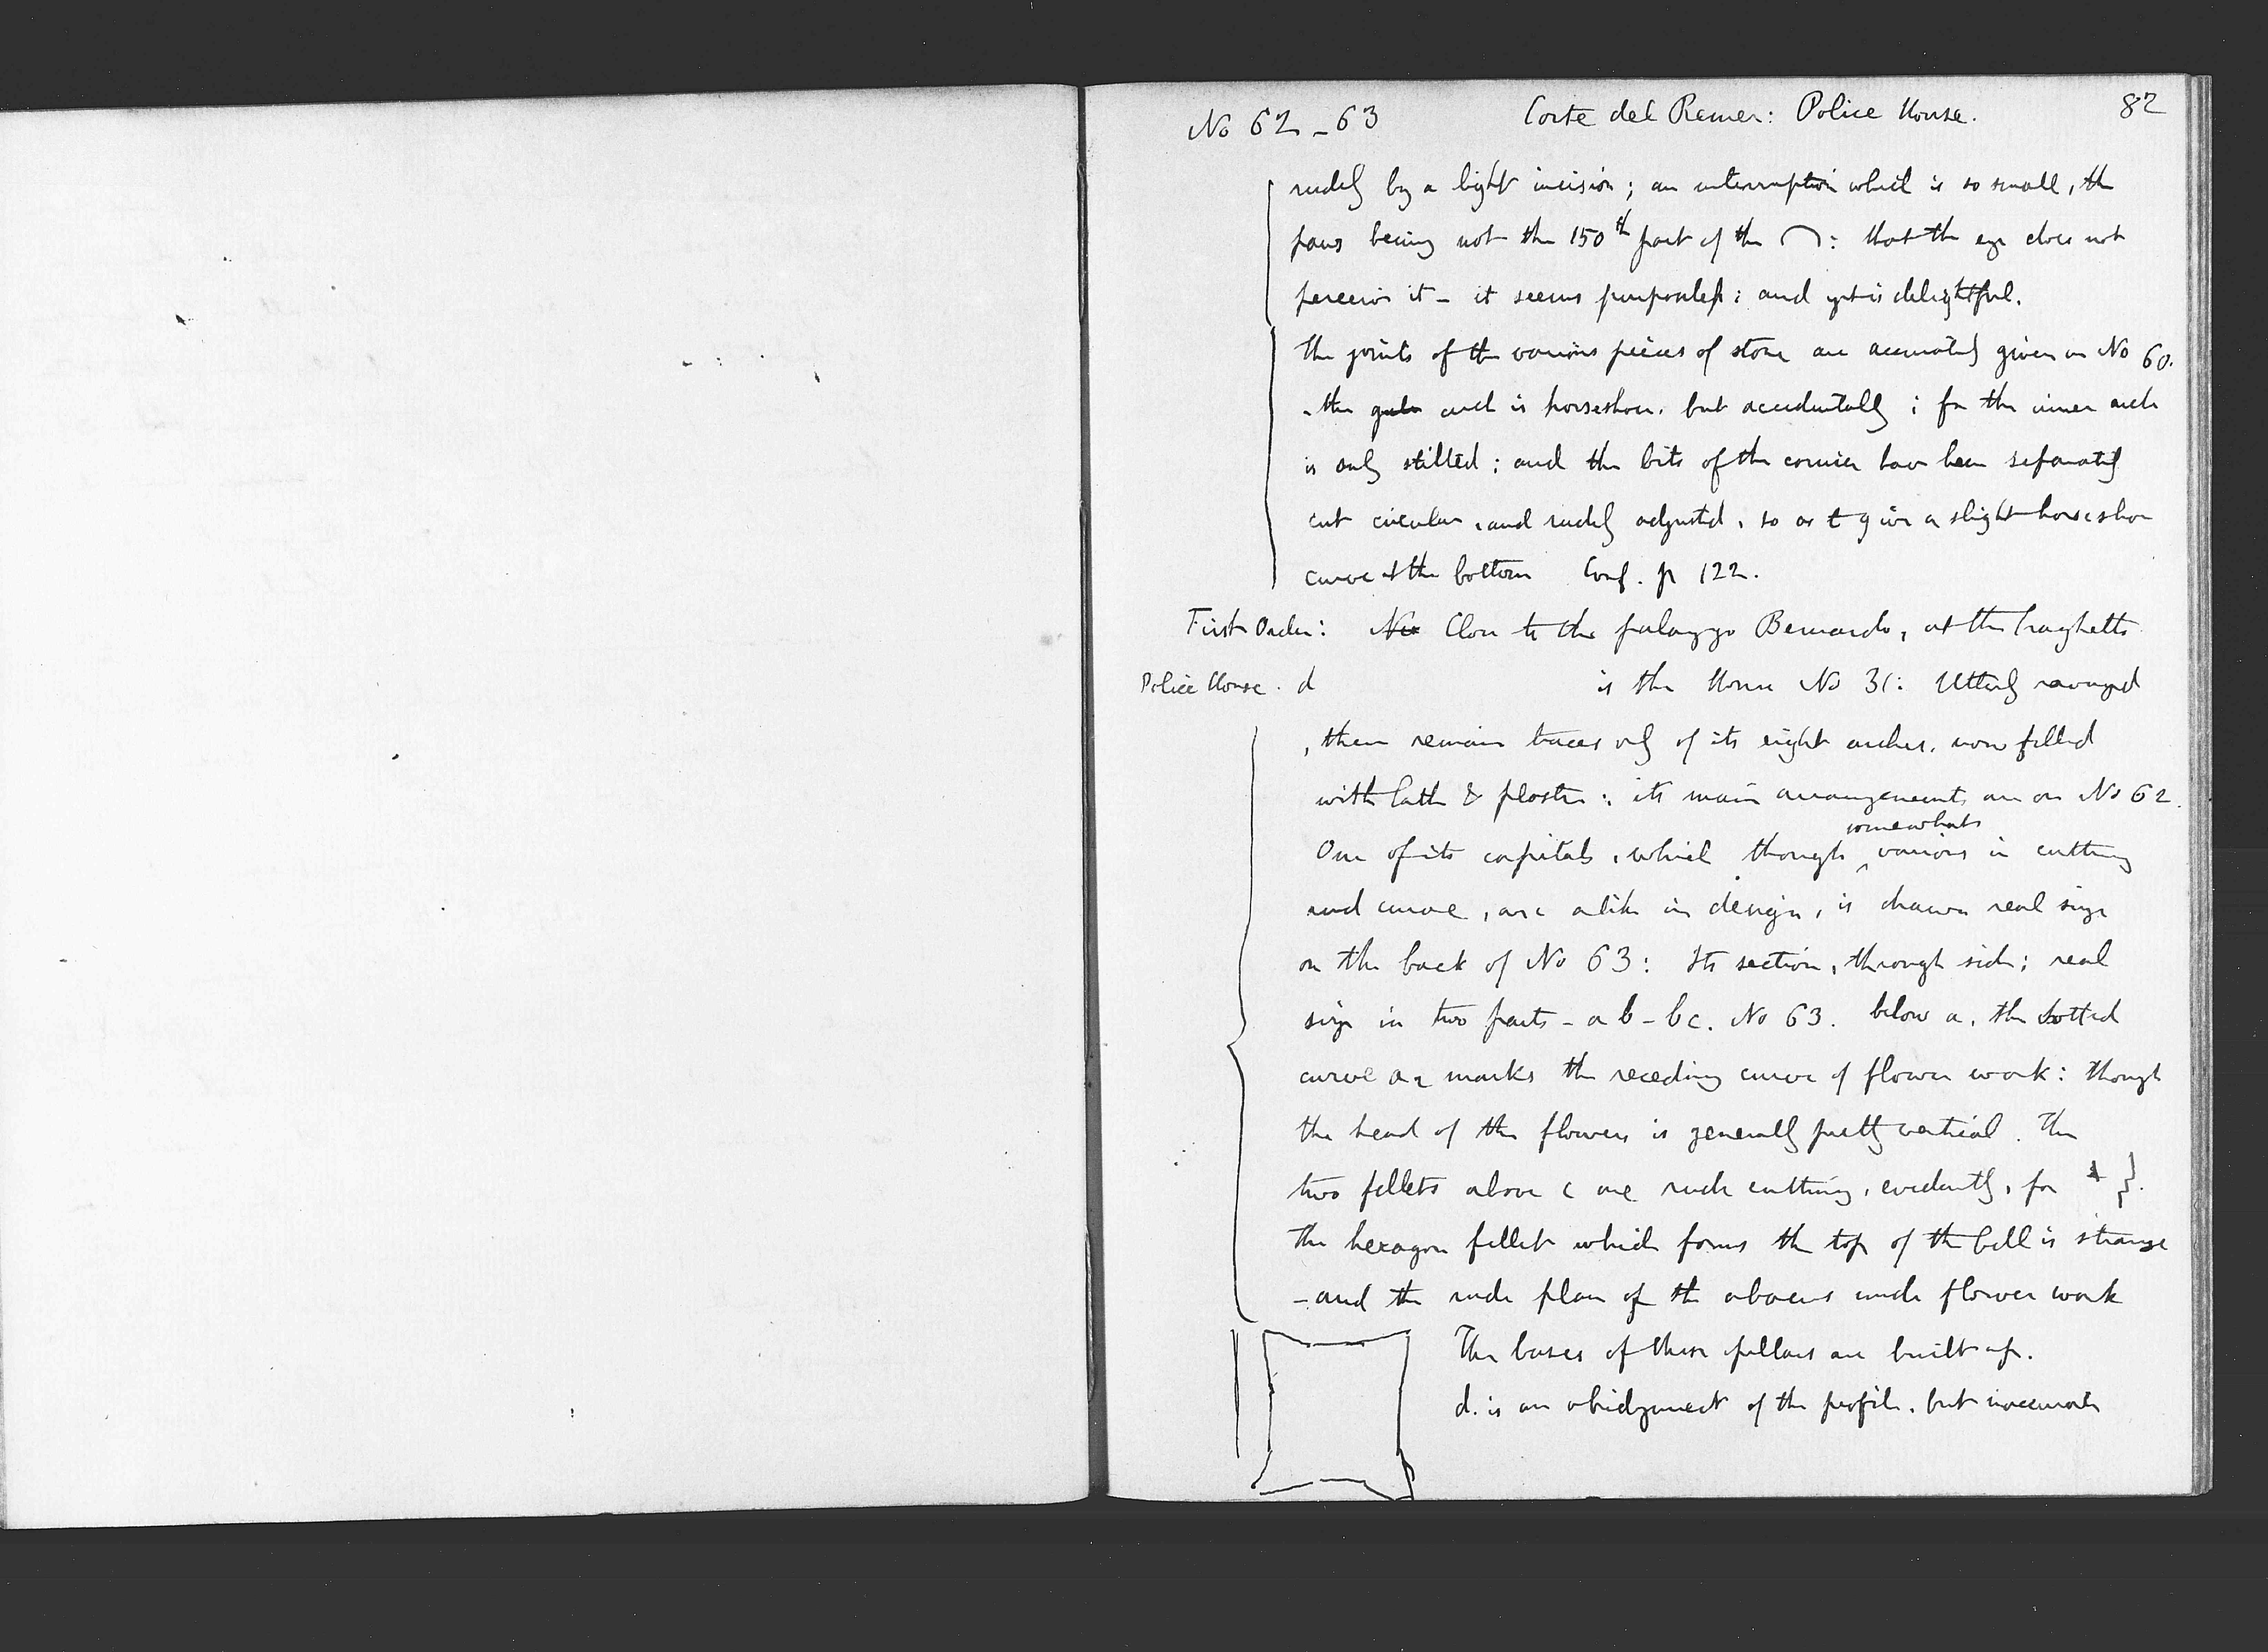 No 62 - 63 Corte del Remer: Police House. 82
rudely by a light incision; an interruption which is so small, the
paws being not the 150th part of the : that the eye does not
perceive it - it seems purposeless: and yet is delightful.
The joints of the various pieces of stone are accurately given on No 60.
- the arch is horseshoe, but accidentally; for the inner arch
is only stilted; and the bits of the cornice have been separately
cut circular, and rudely adjusted, so as to give a slight horseshoe
curve at the bottom Conf. p 122.
First Order: Close to the palazzo Bernardo, at the traghetto
Police House. d is the House No 31: Utterly ravaged
, there remain traces only of its eight arches, now filled
with lath & plaster: its main arrangements are on No 62.
One of its capitals, which though somewhat various in cutting
and curve, are alike in design, is drawn real size
on the back of No 63: Its section, through side; real
size in two parts - a b - b c. No 63. below a, the dotted
curve a 2 marks the receding curve of flower work: though
the head of the flowers is generally pretty vertical. The
two fillets above c are rude cutting, evidently, for
The hexagon fillet which forms the top of the bell is strange
- and the rude plan of the abacus under flower work
The bases of these pillars are built up.
d. is an abridgment of the profile, but inaccurate